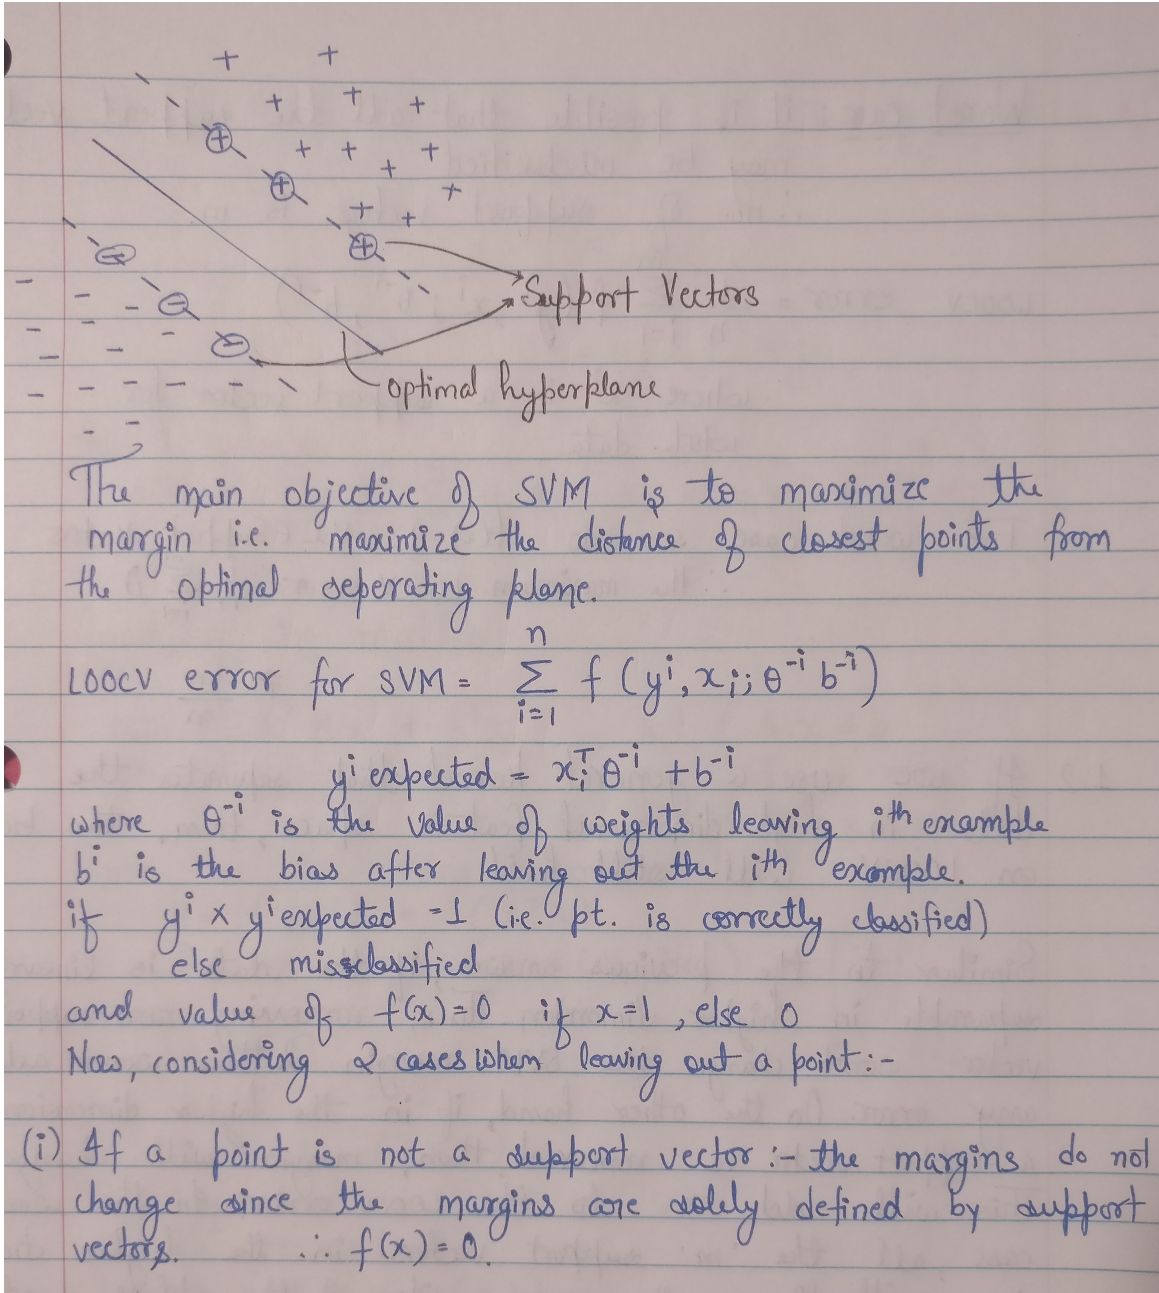 Support Vectors
optimal hyperplane
The main objective of SVM is to maximize the
margin i.e. maximize the distance of closest points from
the optimal seperating plane.
LOOCV error for SVM = n Σ i=1 f (yⁱ, xᵢ; θ⁻ⁱ b⁻ⁱ)
yⁱ expected = xᵢᵀ θ⁻ⁱ + b⁻ⁱ
where θ⁻ⁱ is the value of weights leaving ith example
bⁱ is the bias after leaving out the ith example.
if yⁱ x yⁱ expected = 1 (i.e. pt. is correctly classified)
else missclassified
and value of f(x) = 0 if x = 1, else 0
Now, considering 2 cases when leaving out a point :-
(i) If a point is not a support vector :- the margins do not
change since the margins are solely defined by support
vectors. ∴ f(x) = 0.